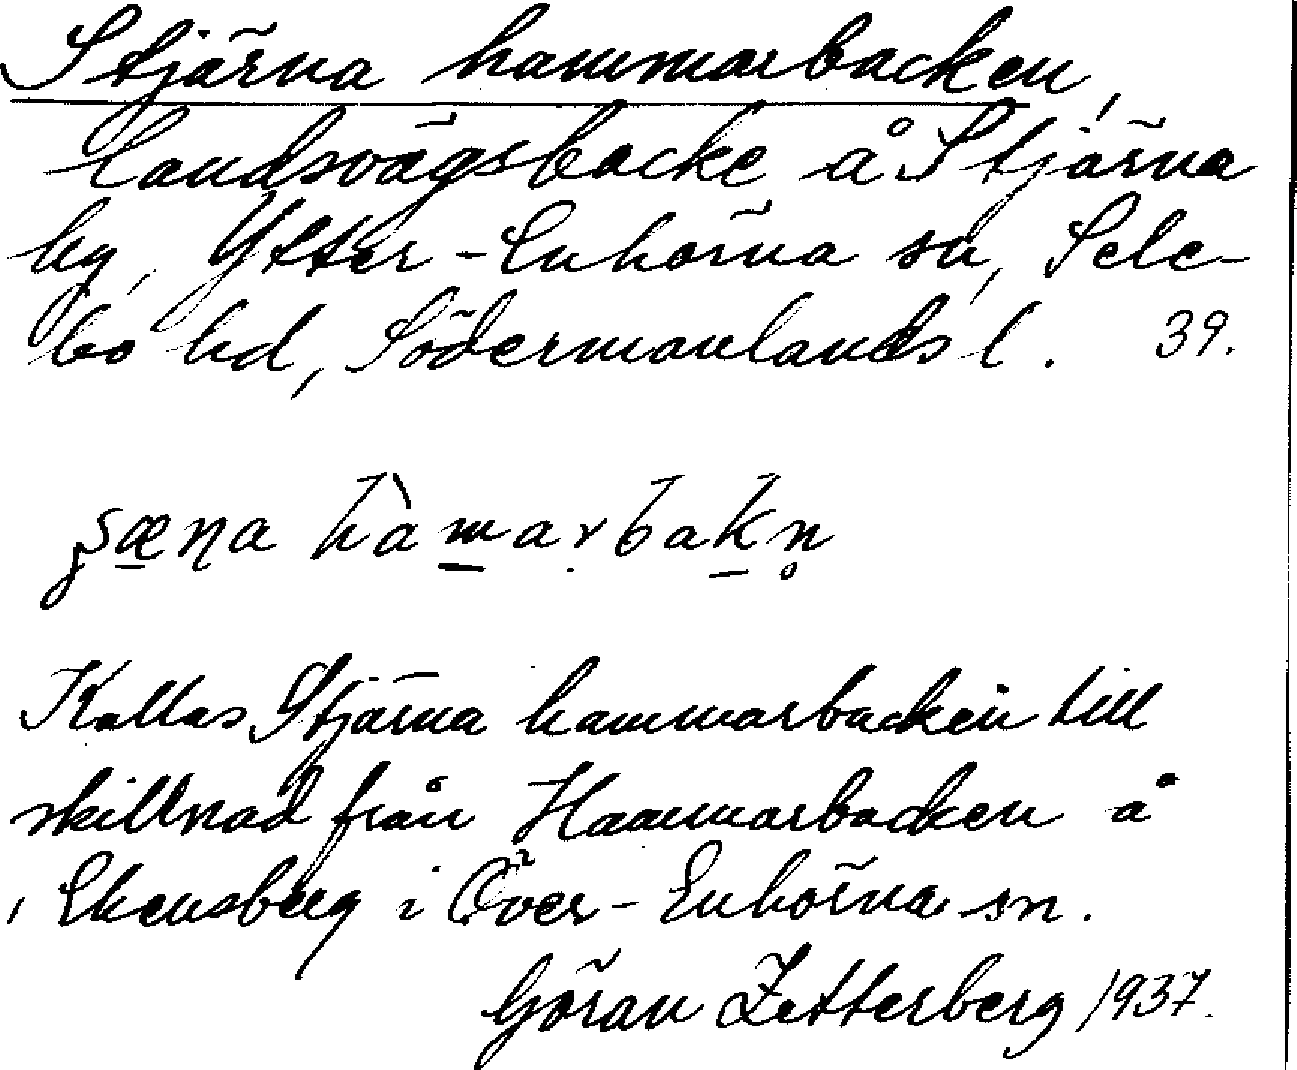 Stjärna hammarbacken,
landsvägsbacke å Stjärna
by, Ytter-Enhörna sn, Sele-
bo hd, Södermanlands l. 39.
ʂæɳa hàmarbakn̥
Kallas Stjärna hammarbacken till
skillnad från Hammarbacken å
Ekensberg i Över-Enhörna sn.
Göran Zetterberg 1937.